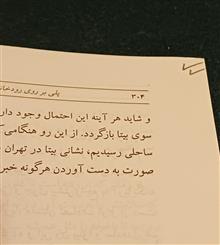 ۳۰۴ پلی بر روی رودخانه
و شاید هر آینه این احتمال وجود دارد
سوی بیتا بازگردد. از این رو هنگامی
ساحلی رسیدیم، نشانی بیتا در تهران
صورت به دست آوردن هرگونه خبر